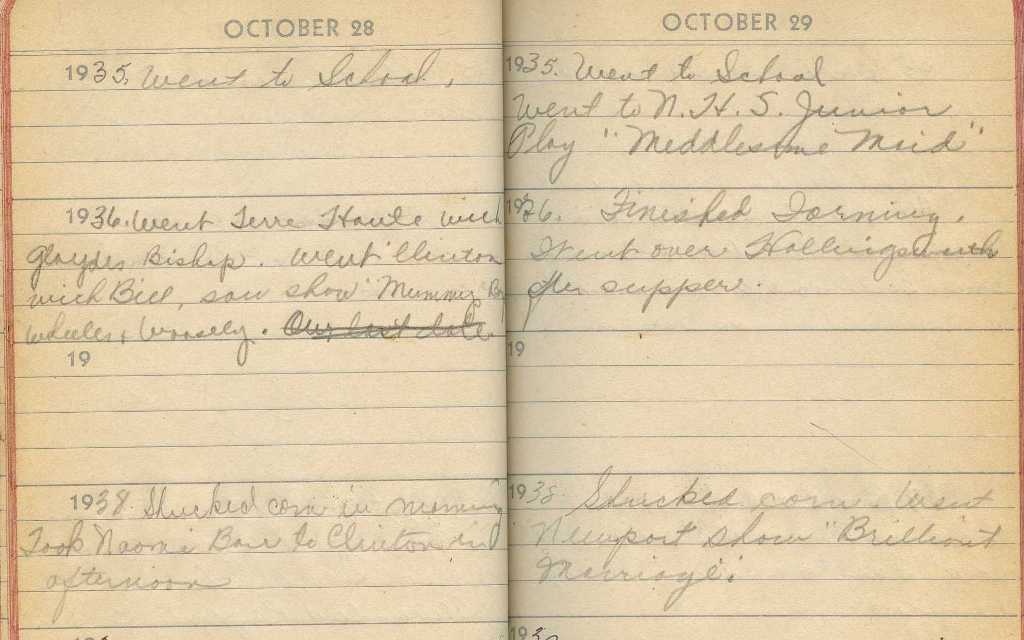 OCTOBER 28
1935. Went to School.
1936. Went Terre Haute with
Glayds Bishop. Went Clinton
with Bill, saw show "Mummy's Boys"
Wheeler & Woosely. Our last date.
19
1938. Shucked corn in morning
Took Naomi Barr to Clinton in
afternoon
OCTOBER 29
1935. Went to School
Went to N. H. S. Junior
Play "Meddlesome Maid"
1936. Finished
Went over Hollingsworth
after supper.
19
1938 Shucked corn. Went
Newport show "Brilliant
Marriage".